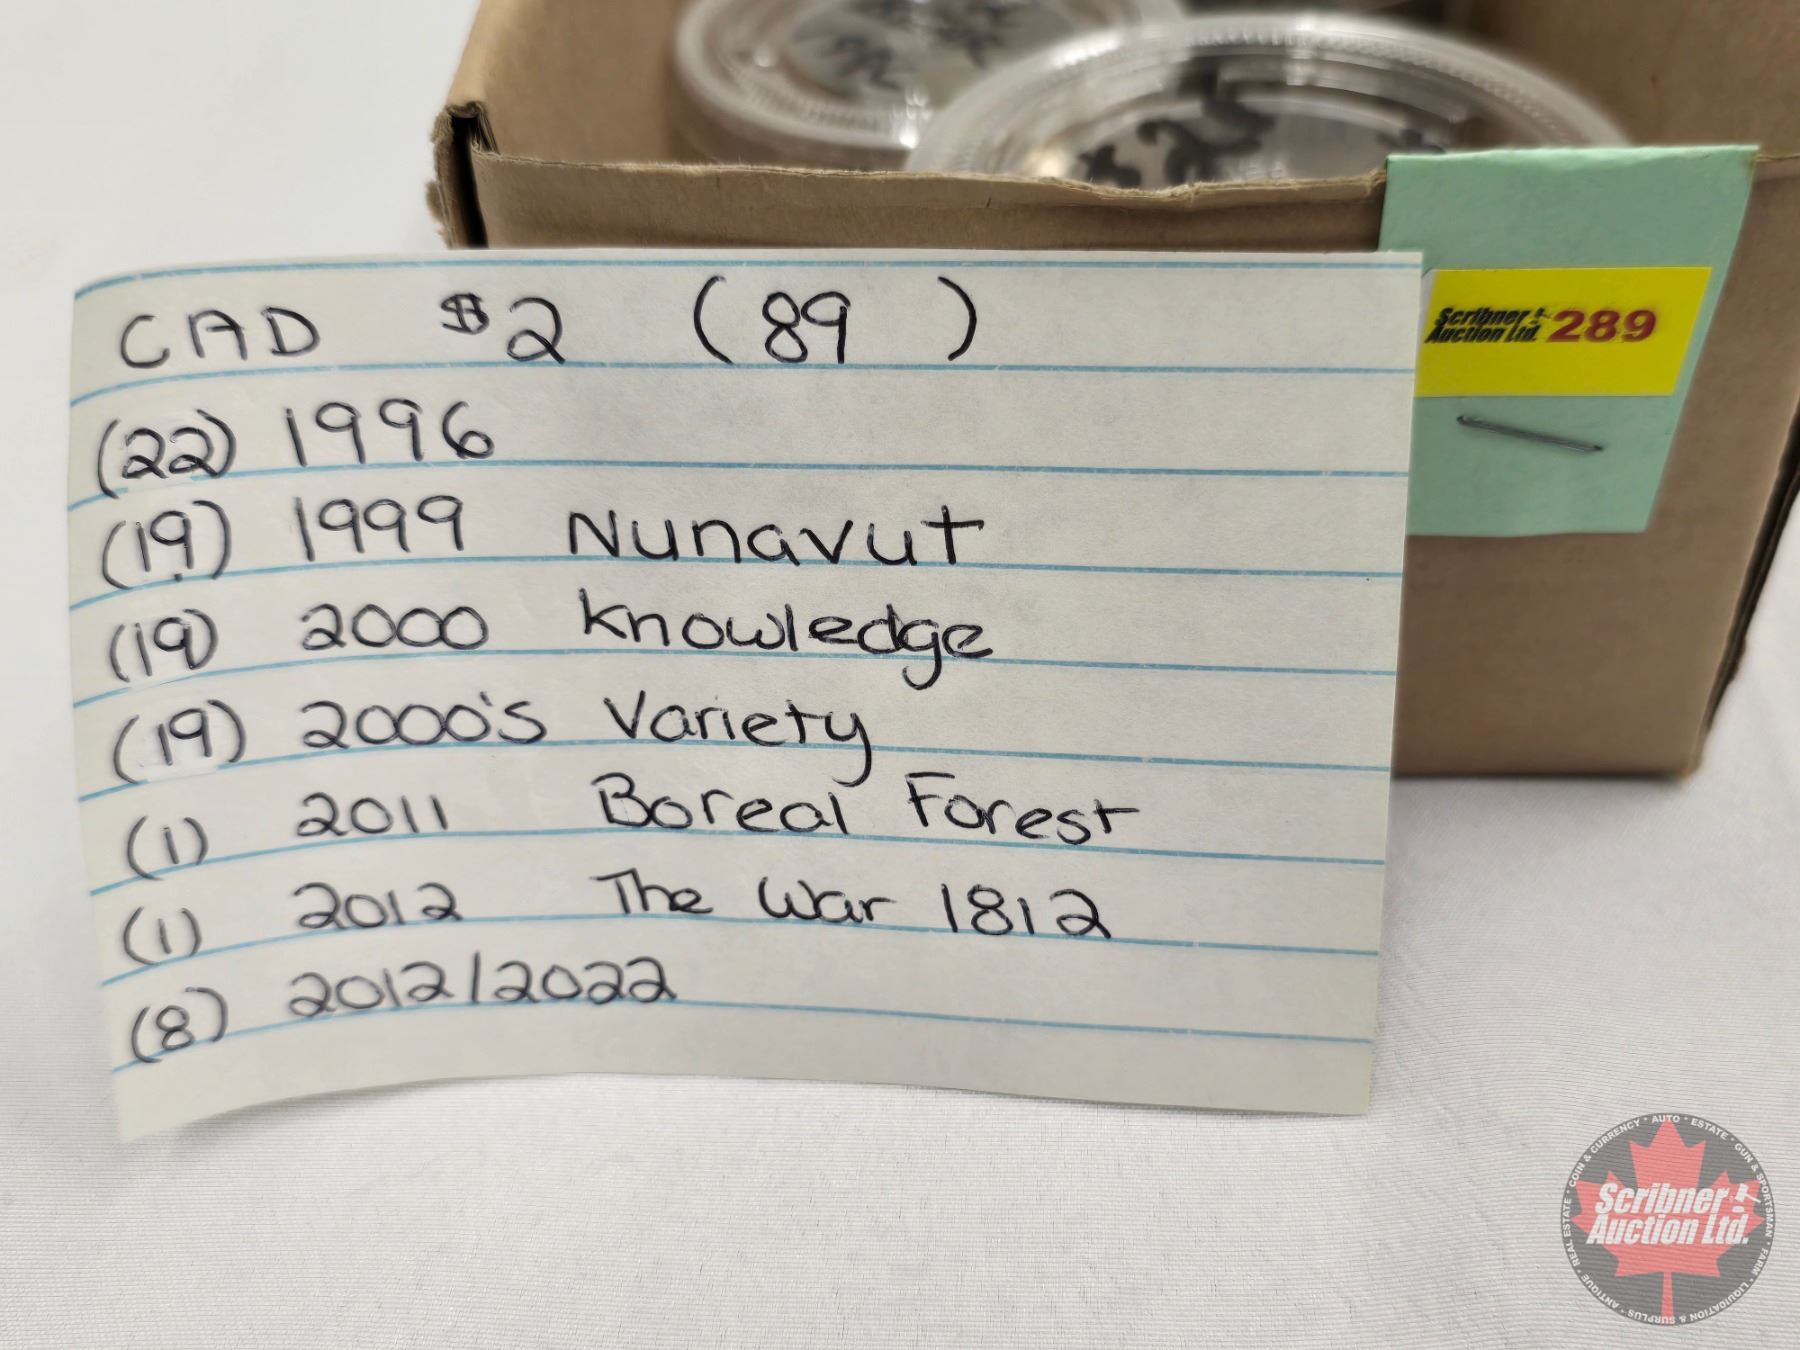 CAD $2 (89 )
(22) 1996
(19) 1999 Nunavut
(19) 2000 Knowledge
(19) 2000's Variety
(1) 2011 Boreal Forest
(1) 2012 The War 1812
(8) 2012/2022
Scribner
Auction Ltd. 289
COIN & CURRENCY • AUTO • ESTATE • GUN & SPORTSMAN • FARM • LIQUIDATION & SURPLUS • ANTIQUE • REAL ESTATE •
Scribner
Auction Ltd.